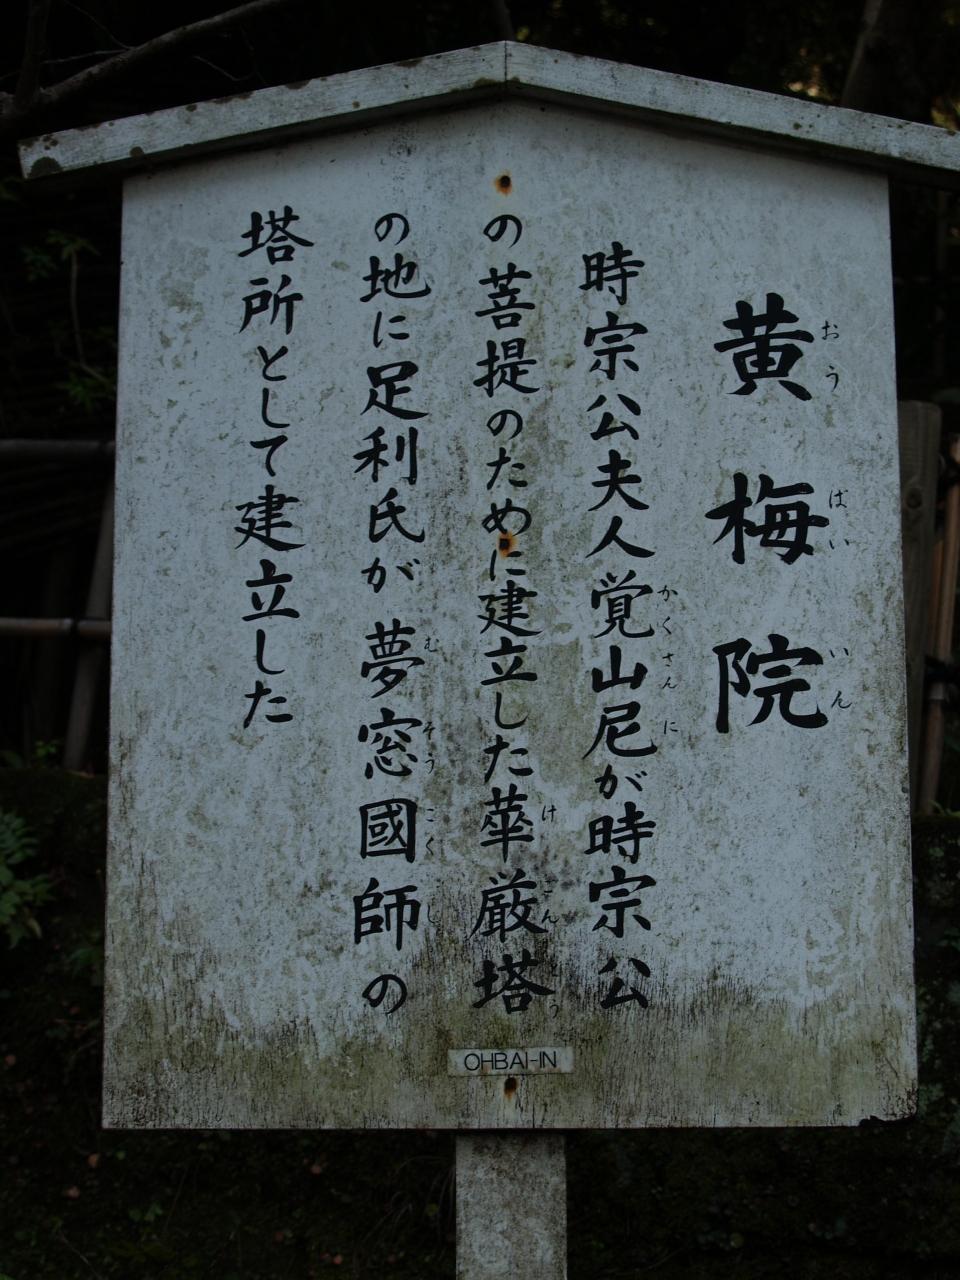 黄梅院
おうばいいん
時宗公夫人覚山尼が時宗公
かくさんに
の菩提のために建立した華厳塔
けごんとう
の地に足利氏が夢窓國師の
むそうこくし
塔所として建立した
OHBAI-IN